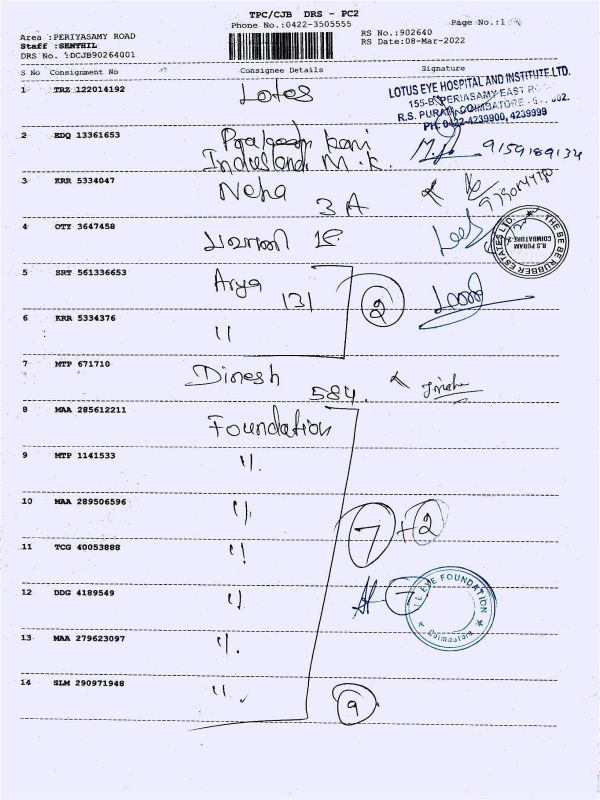 TPC/CJB DRS - PC2
Phone No.:0422-3505555
Page No.:1
Area :PERIYASAMY ROAD
Staff :SENTHIL
DRS No. :DCJB90264001
RS No.:902640
RS Date:08-Mar-2022
S No Consignment No Consignee Details Signature
1 TRZ 122014192 Lotus
LOTUS EYE HOSPITAL AND INSTITUTE LTD.
155-B, PERIASAMY EAST
R.S. PURAM, COIMBATORE
PH: 0422-4239900, 4239999
2 EDQ 13361653
IndusLand M.K. 9159189134
3 KRR 5334047 Neha
3 A
4 OTY 3647458
THE BE BE RUBBER ESTATES LTD.
R.S PURAM
COIMBATORE
5 SRT 561336653 Arya
131 2
6 KRR 5334376 "
7 MTP 671710 Dinesh
584.
8 MAA 285612211 Foundation
9 MTP 1141533 ".
10 MAA 289506596 "
7 + 2
11 TCG 40053888 "
12 DDG 4189549 "
EYE FOUNDATION
Coimbatore
13 MAA 279623097 ".
14 SLM 290971948 ".
9